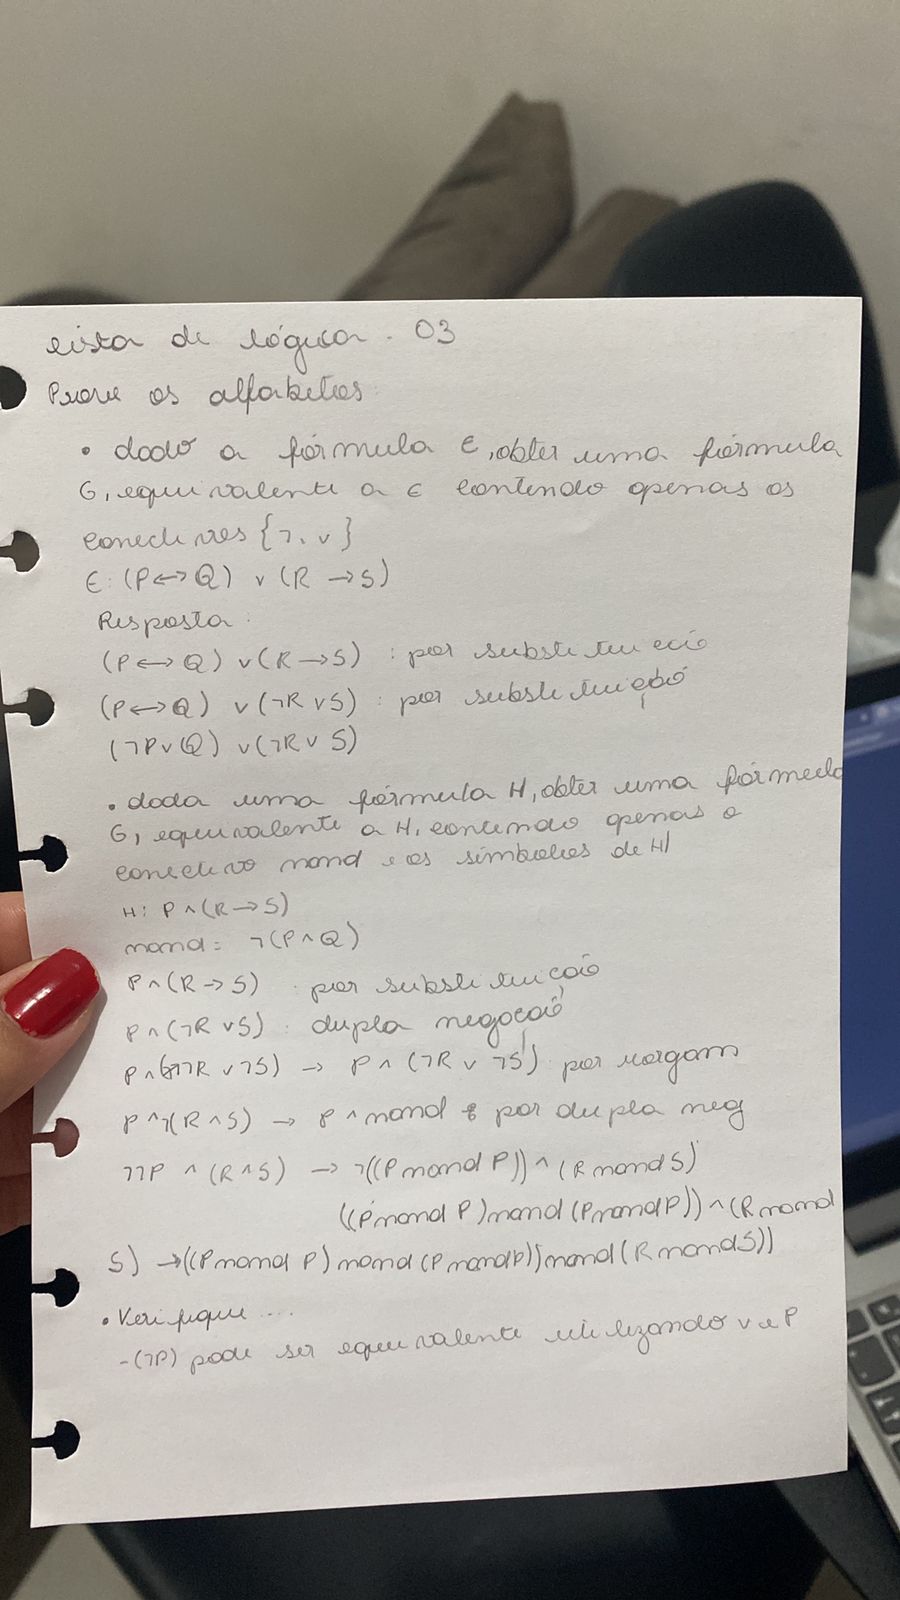 lista de lógica - 03
Prove os alfabetos:
• dado a fórmula E, obter uma fórmula
G, equivalente a E contendo apenas os
conectives {¬, v}
E: (P ↔ Q) v (R → S)
Resposta:
(P ↔ Q) v (R → S) : por substituição
(P ↔ Q) v (¬R v S) : por substituição
(¬P v Q) v (¬R v S)
• dada uma fórmula H, obter uma fórmula
G, equivalente a H, contendo apenas o
conectivo nand e os símbolos de H
H: P ^ (R → S)
nand = ¬(P ^ Q)
P ^ (R → S) : por substituição
P ^ (¬R v S) : dupla negação
P ^ (¬¬R v ¬S) → P ^ (¬R v ¬S) por morgam
P ^ ¬(R ^ S) → P ^ nand por dupla neg
¬¬P ^ (R ^ S) → ¬((P nand P)) ^ (R nand S)
((P nand P) nand (P nand P)) ^ (R nand
S) → ((P nand P) nand (P nand P)) nand (R nand S))
• Verifique ...
- (¬P) pode ser equivalente utilizando v e P